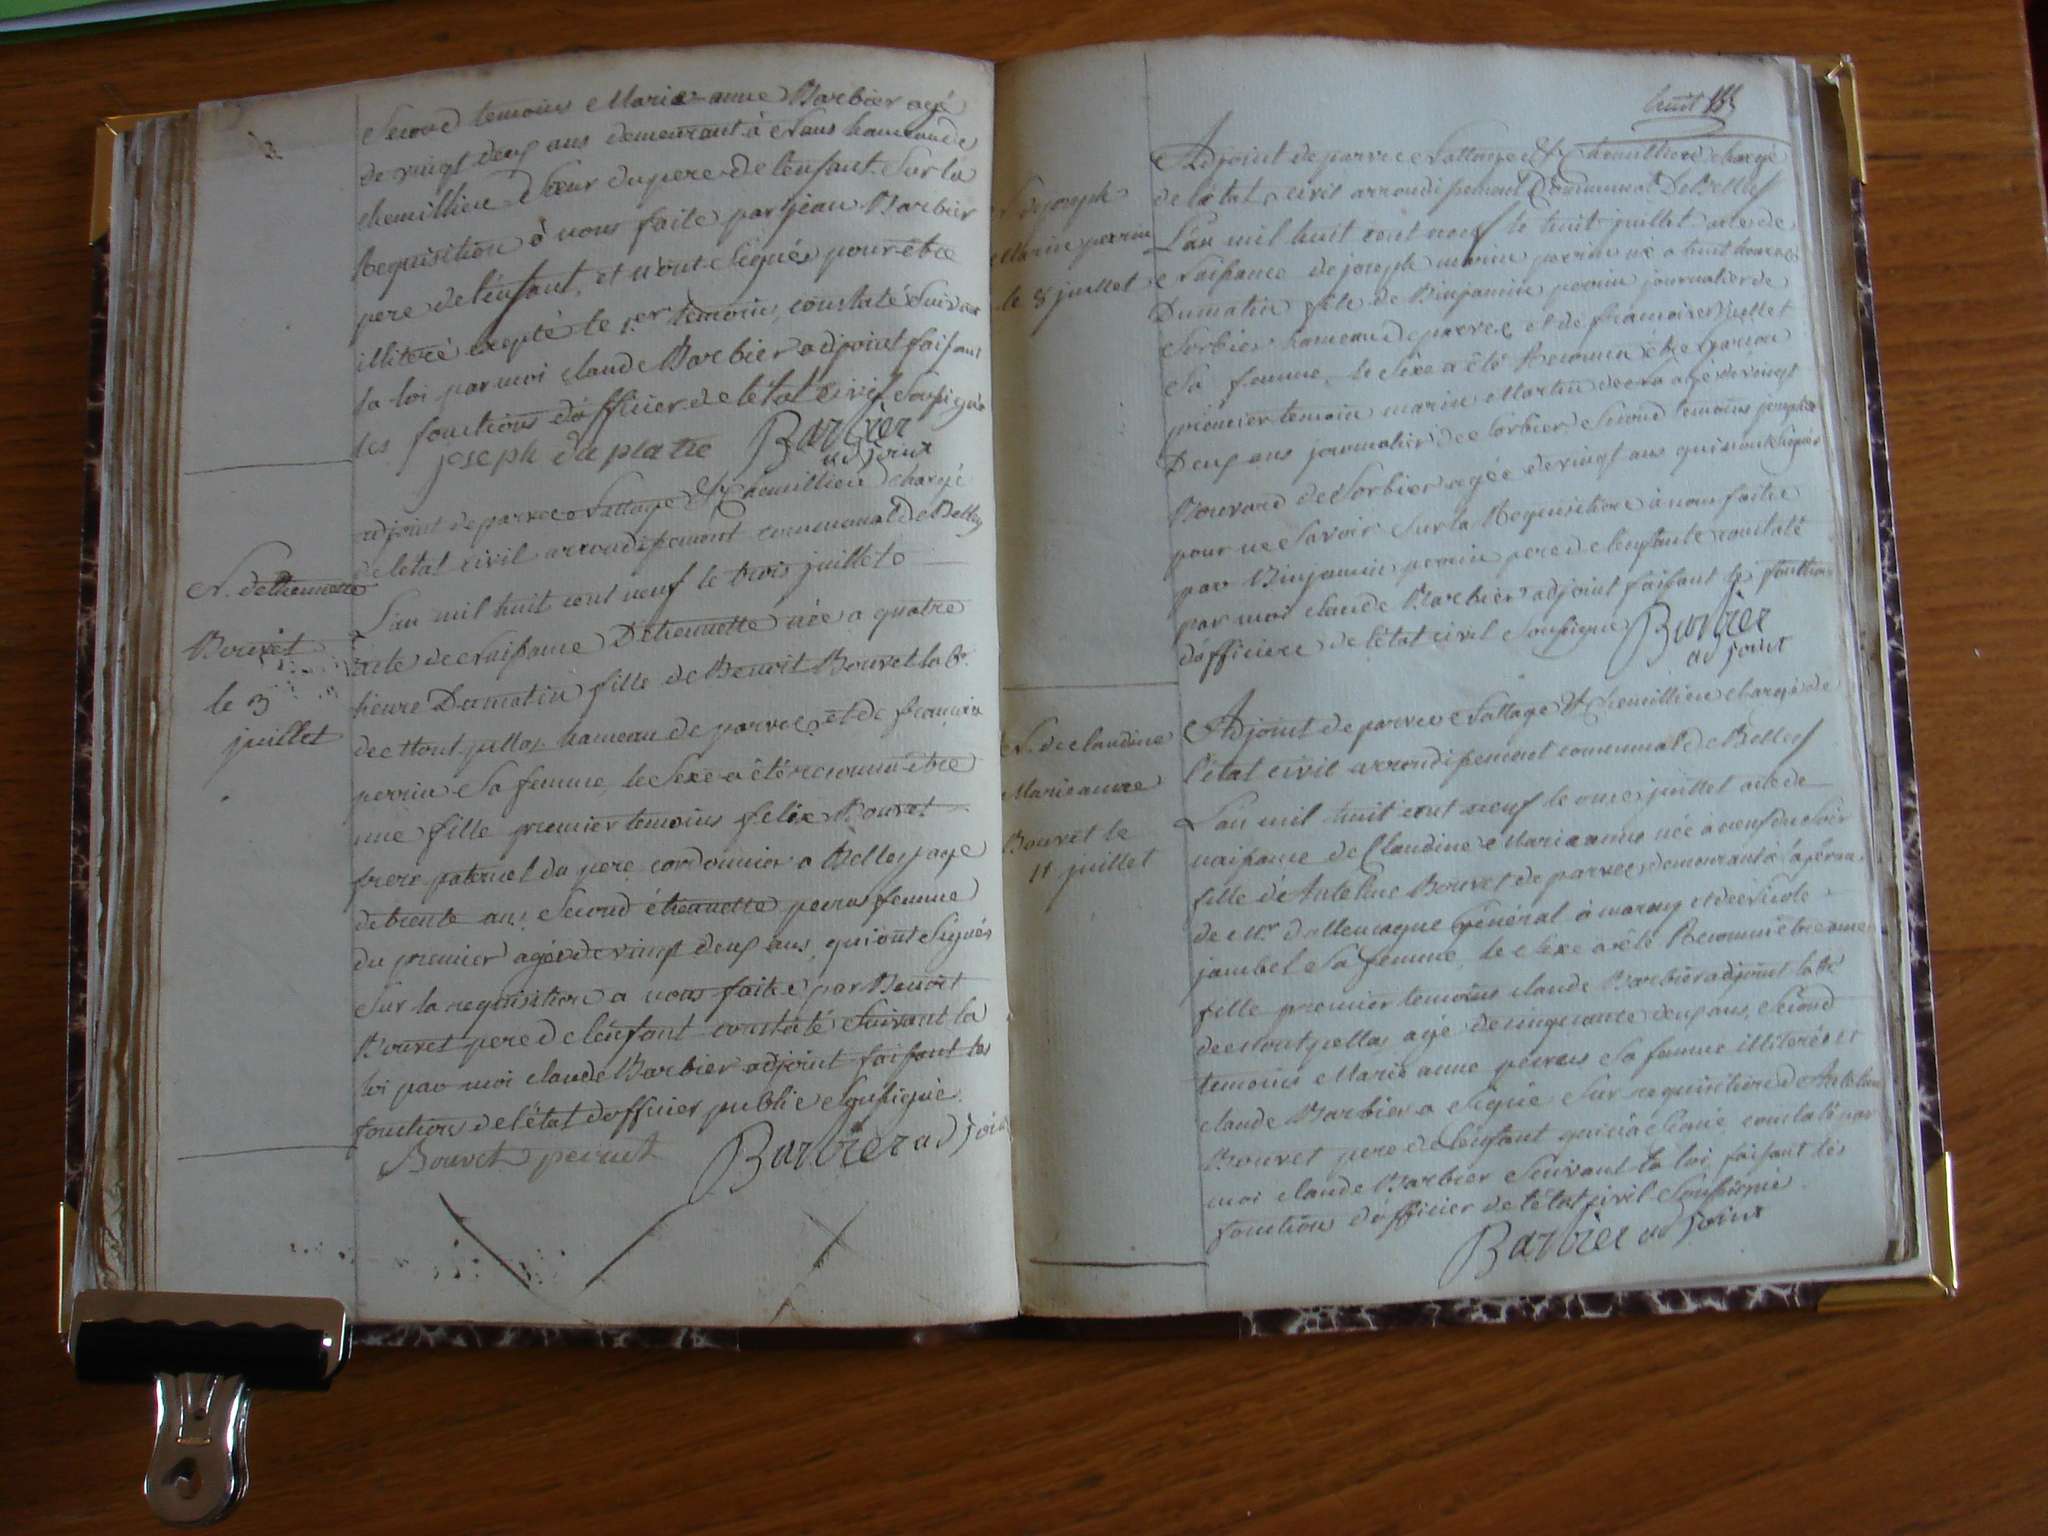 Second temoins Marie anne Barbier agé
de vingt deux ans demeurant à Nans hameau de
chemillieu Sœur du pere de lenfant. Sur la
Requisition à nous faite par jean Barbier
pere de lenfant, et n'ont Signés pour être
illiteré exepté le 1er temoins, constaté Suivan
la loi par moi claude Barbier adjoint faisant
les fonctions d'officier de létat civil Soussigné
joseph duplatre Barbier
adjoint
adjoint de parves Nattage & Chemillieu chargé
de létat civil arrondissement communal de Belley
N. detiennette
Bouvet
le 3
juillet
L'an mil huit cent neuf le trois juillet
acte de Naissance Detiennette née a quatre
heure Dumatin fille de Benoit Bouvet lab.r
de Montpellas hameau de parves et de francoise
perrin Sa femme, le Sexe a été reconnu être
une fille premier temoins felix Bouvet
frere paternel du pere cordonnier a Belley age
de trente ans. Second étiennette femme
du premier agée de vingt deux ans, qui ont Signés
Sur la requisition a nous faite par Benoit
Bouvet pere de lenfant constaté Suivant la
loi par moi claude Barbier adjoint faisant les
fonctions de létat d'officier public Soussigné.
Bouvet Barbier adjoint
huit
Adjoint de parves Nattage & Chemillieu chargé
de létat civil arrondissement Communal De Belley
N. de joseph
Marin perrin
le 8 juillet
L'an mil huit cent neuf le huit juillet acte de
Naissance de joseph marin perrin né a huit heures
Dumatin fils de Binjamin perrin journalier de
Sorbier hameau de parves et de francoise
Sa femme, le Sexe a été Reconnu être garcon
premier temoin marin Martin agé de vingt
Deux ans journalier de Sorbier. Second temoins joseph
Bouvard de Sorbier agée de vingt ans qui n'ont Signés
pour ne Savoir Sur la Requisition à nous faite
par Binjamin perrin pere de lenfant constaté
par moi claude Barbier adjoint faisant les fonctions
d'officier de létat civil Soussigné Barbier
adjoint
Adjoint de parves Nattage & Chemillieu chargé de
l'état civil arrondissement communal de Belley
N. de claudine
Marieanne
Bouvet le
11 juillet
L'an mil huit cent neuf le onze juillet acte de
naissance de Claudine Marieanne née à neuf du Soir
fille d'Antelme Bouvet de parves, demeurant à
de Mr. dallemagne Général à et de Nicole
jambel Sa femme, le Sexe a été Reconnu être une
fille premier temoins claude Barbier adjoint lab.r
de Montpellas agé de cinquante deux ans, Second
temoins Marie anne Sa femme illiterés et
claude Barbier a Signé Sur requisition d'Antelme
Bouvet pere de lenfant qui n'a Signé constaté par
moi claude Barbier Suivant la loi, faisant les
fonctions d'officier de létat civil Soussigné.
Barbier adjoint